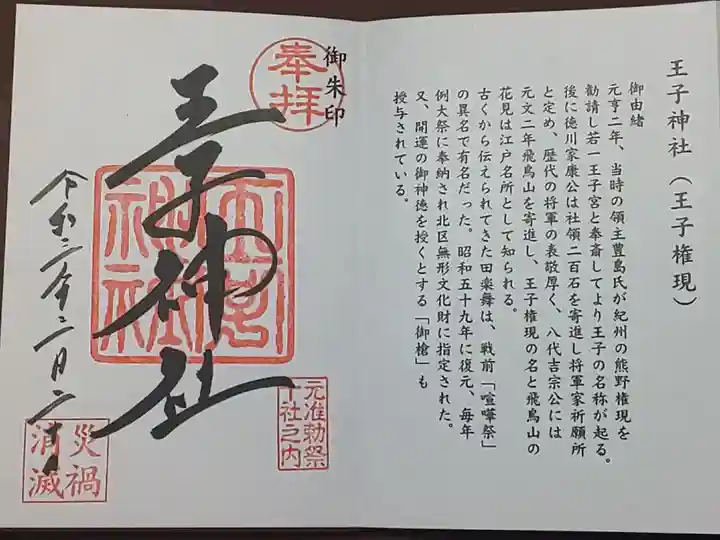 王子神社（王子権現）
御由緒
元亨二年、当時の領主豊島氏が紀州の熊野権現を
勧請し若一王子宮と奉斎してより王子の名称が起る。
後に徳川家康公は社領二百石を寄進し将軍家祈願所
と定め、歴代の将軍の表敬厚く、八代吉宗公には
元文二年飛鳥山を寄進し、王子権現の名と飛鳥山の
花見は江戸名所として知られる。
古くから伝えられてきた田楽舞は、戦前「喧嘩祭」
の異名で有名だった。昭和五十九年に復元、毎年
例大祭に奉納され北区無形文化財に指定された。
又、開運の御神徳を授くとする「御槍」も
授与されている。
御朱印
奉拝
王子神社
元准勅祭
十社之内
災禍
消滅